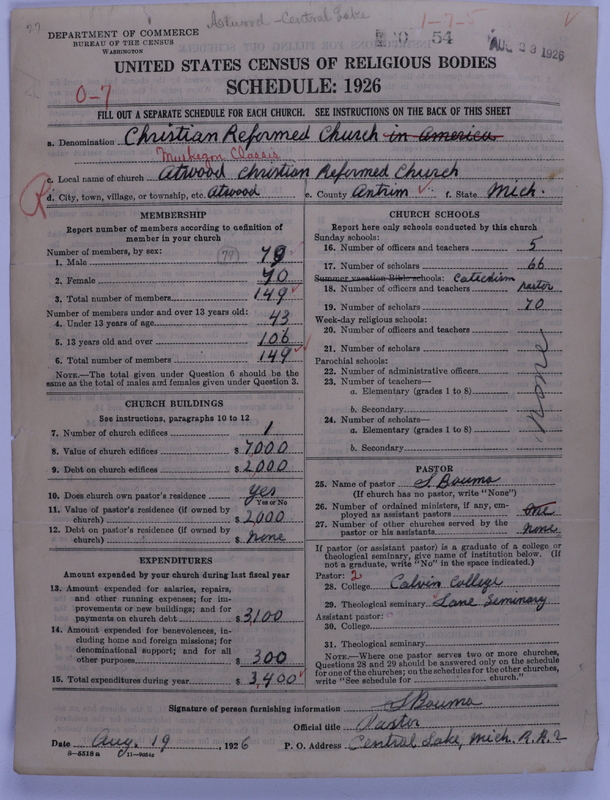 Atwood - Central Lake
DEPARTMENT OF COMMERCE
BUREAU OF THE CENSUS
WASHINGTON
1-7-5
NO 54
AUG 23 1926
UNITED STATES CENSUS OF RELIGIOUS BODIES
SCHEDULE: 1926
0-7
FILL OUT A SEPARATE SCHEDULE FOR EACH CHURCH. SEE INSTRUCTIONS ON THE BACK OF THIS SHEET
a. Denomination Christian Reformed Church in America
Muskegon Classis
c. Local name of church Atwood Christian Reformed Church
d. City, town, village, or township, etc. Atwood e. County Antrim f. State Mich.
MEMBERSHIP
Report number of members according to definition of
member in your church
Number of members, by sex:
1. Male 79
2. Female 70
3. Total number of members 149
Number of members under and over 13 years old:
4. Under 13 years of age 43
5. 13 years old and over 106
6. Total number of members 149
NOTE.—The total given under Question 6 should be
same as the total of males and females given under Question 3.
CHURCH BUILDINGS
See instructions, paragraphs 10 to 12
7. Number of church edifices 1
8. Value of church edifices $ 7,000
9. Debt on church edifices $ 2,000
10. Does church own pastor's residence yes
Yes or No
11. Value of pastor's residence (if owned by
church) $ 2,000
12. Debt on pastor's residence (if owned by
church) $ none
EXPENDITURES
Amount expended by your church during last fiscal year
13. Amount expended for salaries, repairs,
and other running expenses; for im-
provements or new buildings; and for
payments on church debt $ 3,100
14. Amount expended for benevolences, in-
cluding home and foreign missions; for
denominational support; and for all
other purposes $ 300
15. Total expenditures during year $ 3,400
CHURCH SCHOOLS
Report here only schools conducted by this church
Sunday schools:
16. Number of officers and teachers 5
17. Number of scholars 66
Summer vacation Bible schools: Catechism
18. Number of officers and teachers pastor
19. Number of scholars 70
Week-day religious schools:
20. Number of officers and teachers
21. Number of scholars
Parochial schools:
22. Number of administrative officers
23. Number of teachers—
a. Elementary (grades 1 to 8)
b. Secondary
24. Number of scholars—
a. Elementary (grades 1 to 8)
b. Secondary
none
PASTOR
25. Name of pastor S. Bouma
(If church has no pastor, write "None")
26. Number of ordained ministers, if any, em-
ployed as assistant pastors one
27. Number of other churches served by the
pastor or his assistants none
If pastor (or assistant pastor) is a graduate of a college or
theological seminary, give name of institution below. (If
not a graduate, write "No" in the space indicated.)
Pastor: 2
28. College Calvin College
29. Theological seminary Lane Seminary
Assistant pastor:
30. College
31. Theological seminary
NOTE.—Where one pastor serves two or more churches,
Questions 28 and 29 should be answered only on the schedule
for one of the churches; on the schedules for the other churches,
write "See schedule for church."
Signature of person furnishing information S Bouma
Official title Pastor
Date Aug. 19, 1926 P. O. Address Central Lake, Mich. R.R. 2
8-5518a 11-9084